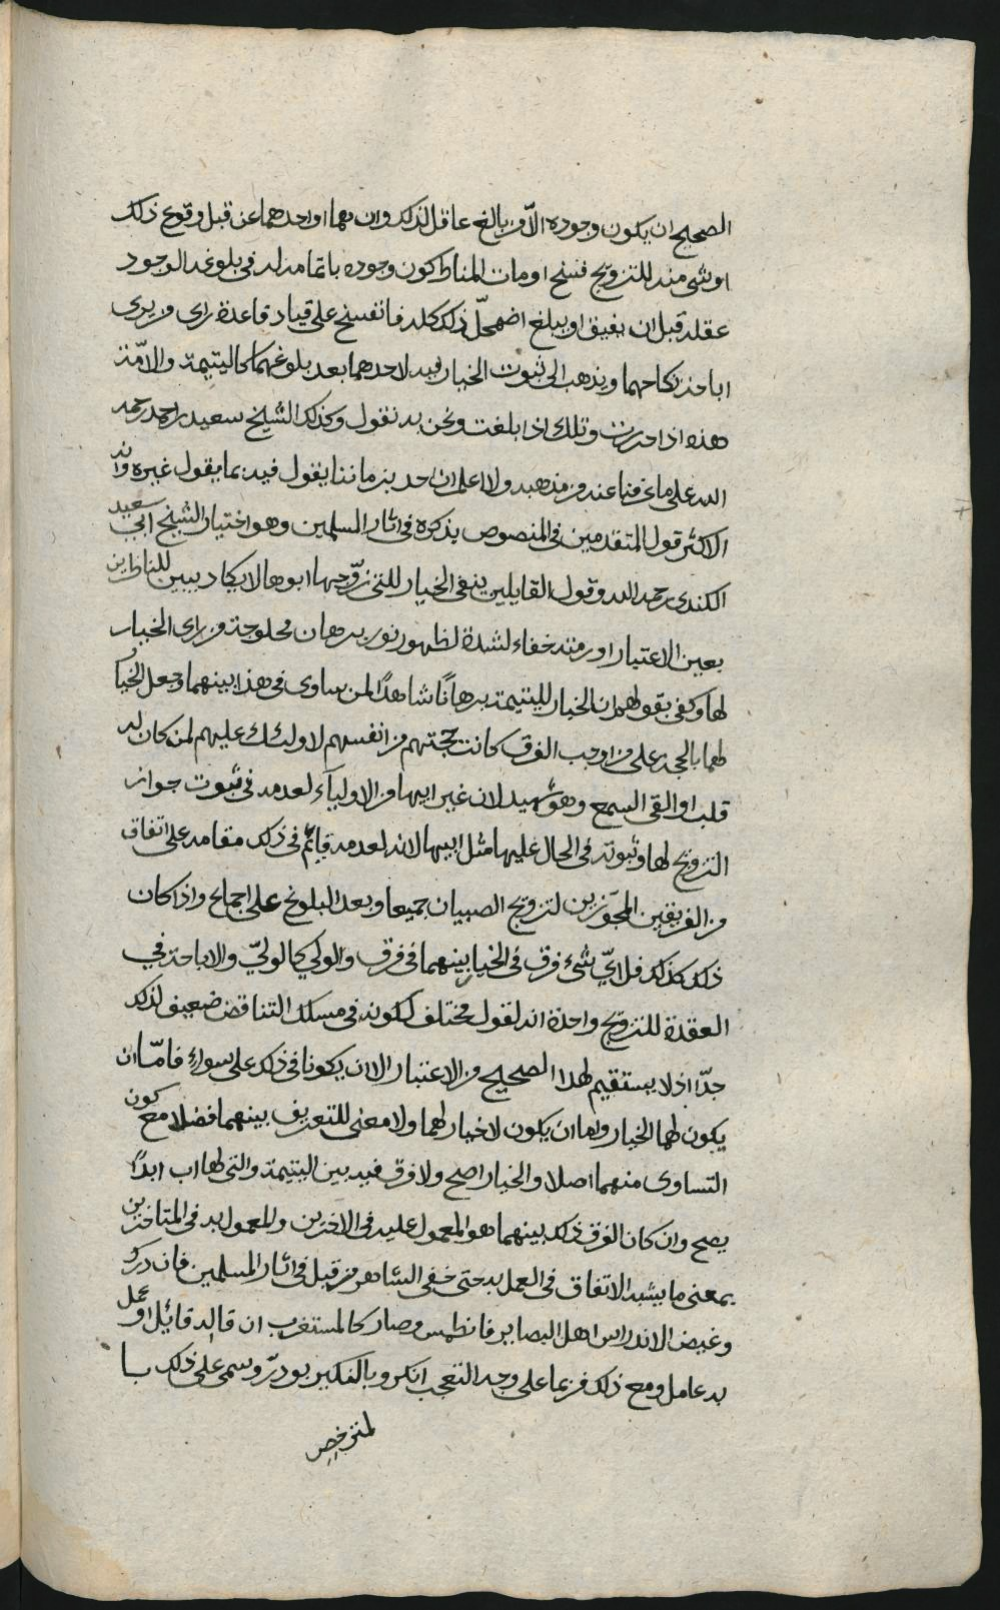 الصحيح ان يكون وجوده الا من بالغ عاقل لذلك وان هما او احدهما عن قبل وقوع ذلك
او شي منه للتزويج فسخ او مات المناط كون وجوده باتمامه له في بلوغه الوجود
عقله قبل ان يفيق او يبلغ اضمحلّ ذلك كله فانفسخ على قياد قاعدة راى من يرى
اباحة نكاحهما ويذهب الى ثبوت الخيار فيه لاحدهما بعد بلوغهما كاليتيمة والامة
هذه اذا حررت وتلك اذا بلغت ونحن به نقول وكذلك الشيخ سعيد بن احمد رحمه
الله على ما عرفنا عنه من مذهبه ولا اعلم ان احد بزماننا يقول فيه بما يقول غيره وانه
الاكثر قول المتقدمين في المنصوص بذكره في اثار المسلمين وهو اختيار الشيخ ابي سعيد
الكندى رحمه الله وقول القايلين ينفى الخيار للتى زوّجها ابوها لا يكاد يبين للناظرين
بعين الاعتبار او رمته خفاء لشدة لظهور نور برهان محلوحة من راى الخيار
لها وكفى بقولهم ان الخيار لليتيمة برهانًا شاهدًا لمن ساوى في هذا بينهما وجعل الخيار
لهما بالحجة على من اوجب الفرق كانت حجتهم من انفسهم لاولئك عليهم لمن كان له
قلب او القى السمع وهو شهيد لان غير ابيها من الاولياء لعدمه في ثبوت جواز
التزويج لها وثبوته في الحال عليها مثل ابيها لانه لعدمه قائم في ذلك مقامه على اتفاق
من الفريقين المجوّزين لتزويج الصبيان جميعا وبعد البلوغ على اجماع واذا كان
ذلك كذلك فلايّ شيء فرق في الخيار بينهما في فرق والولي كالوليّ والاباحة في
العقدة للتزويج واحدة انه لقول مختلف لكونه في مسلك التناقض ضعيف لذلك
جدّا اذ لا يستقيم لهذا الصحيح من الاعتبار الا ان يكونا في ذلك على سواء فامّا ان
يكون لهما الخيار واما ان يكون لا خيار لهما ولا معنى للتعريف بينهما فضلا مع كون
التساوى منهما اصلا والخيار اصح ولا فرق فيه بين اليتيمة والتى لها اب ابدًا
يصح وان كان الفرق ذلك بينهما هو المعمول عليه في الاخرين والمعمول به في المتاخرين
بمعنى ما يشبه الاتفاق في العمل به حتى خفى الساهر من قبل في اثار المسلمين فان درك
وغيض الاندراس اهل البصاير فانطمس وصار كالمستغرب ان قاله قائل او عمل
به عامل ومع ذلك فربما على وجه التعجب انكر وبالفكير بودرّ وسمى على ذلك با
لمترخص